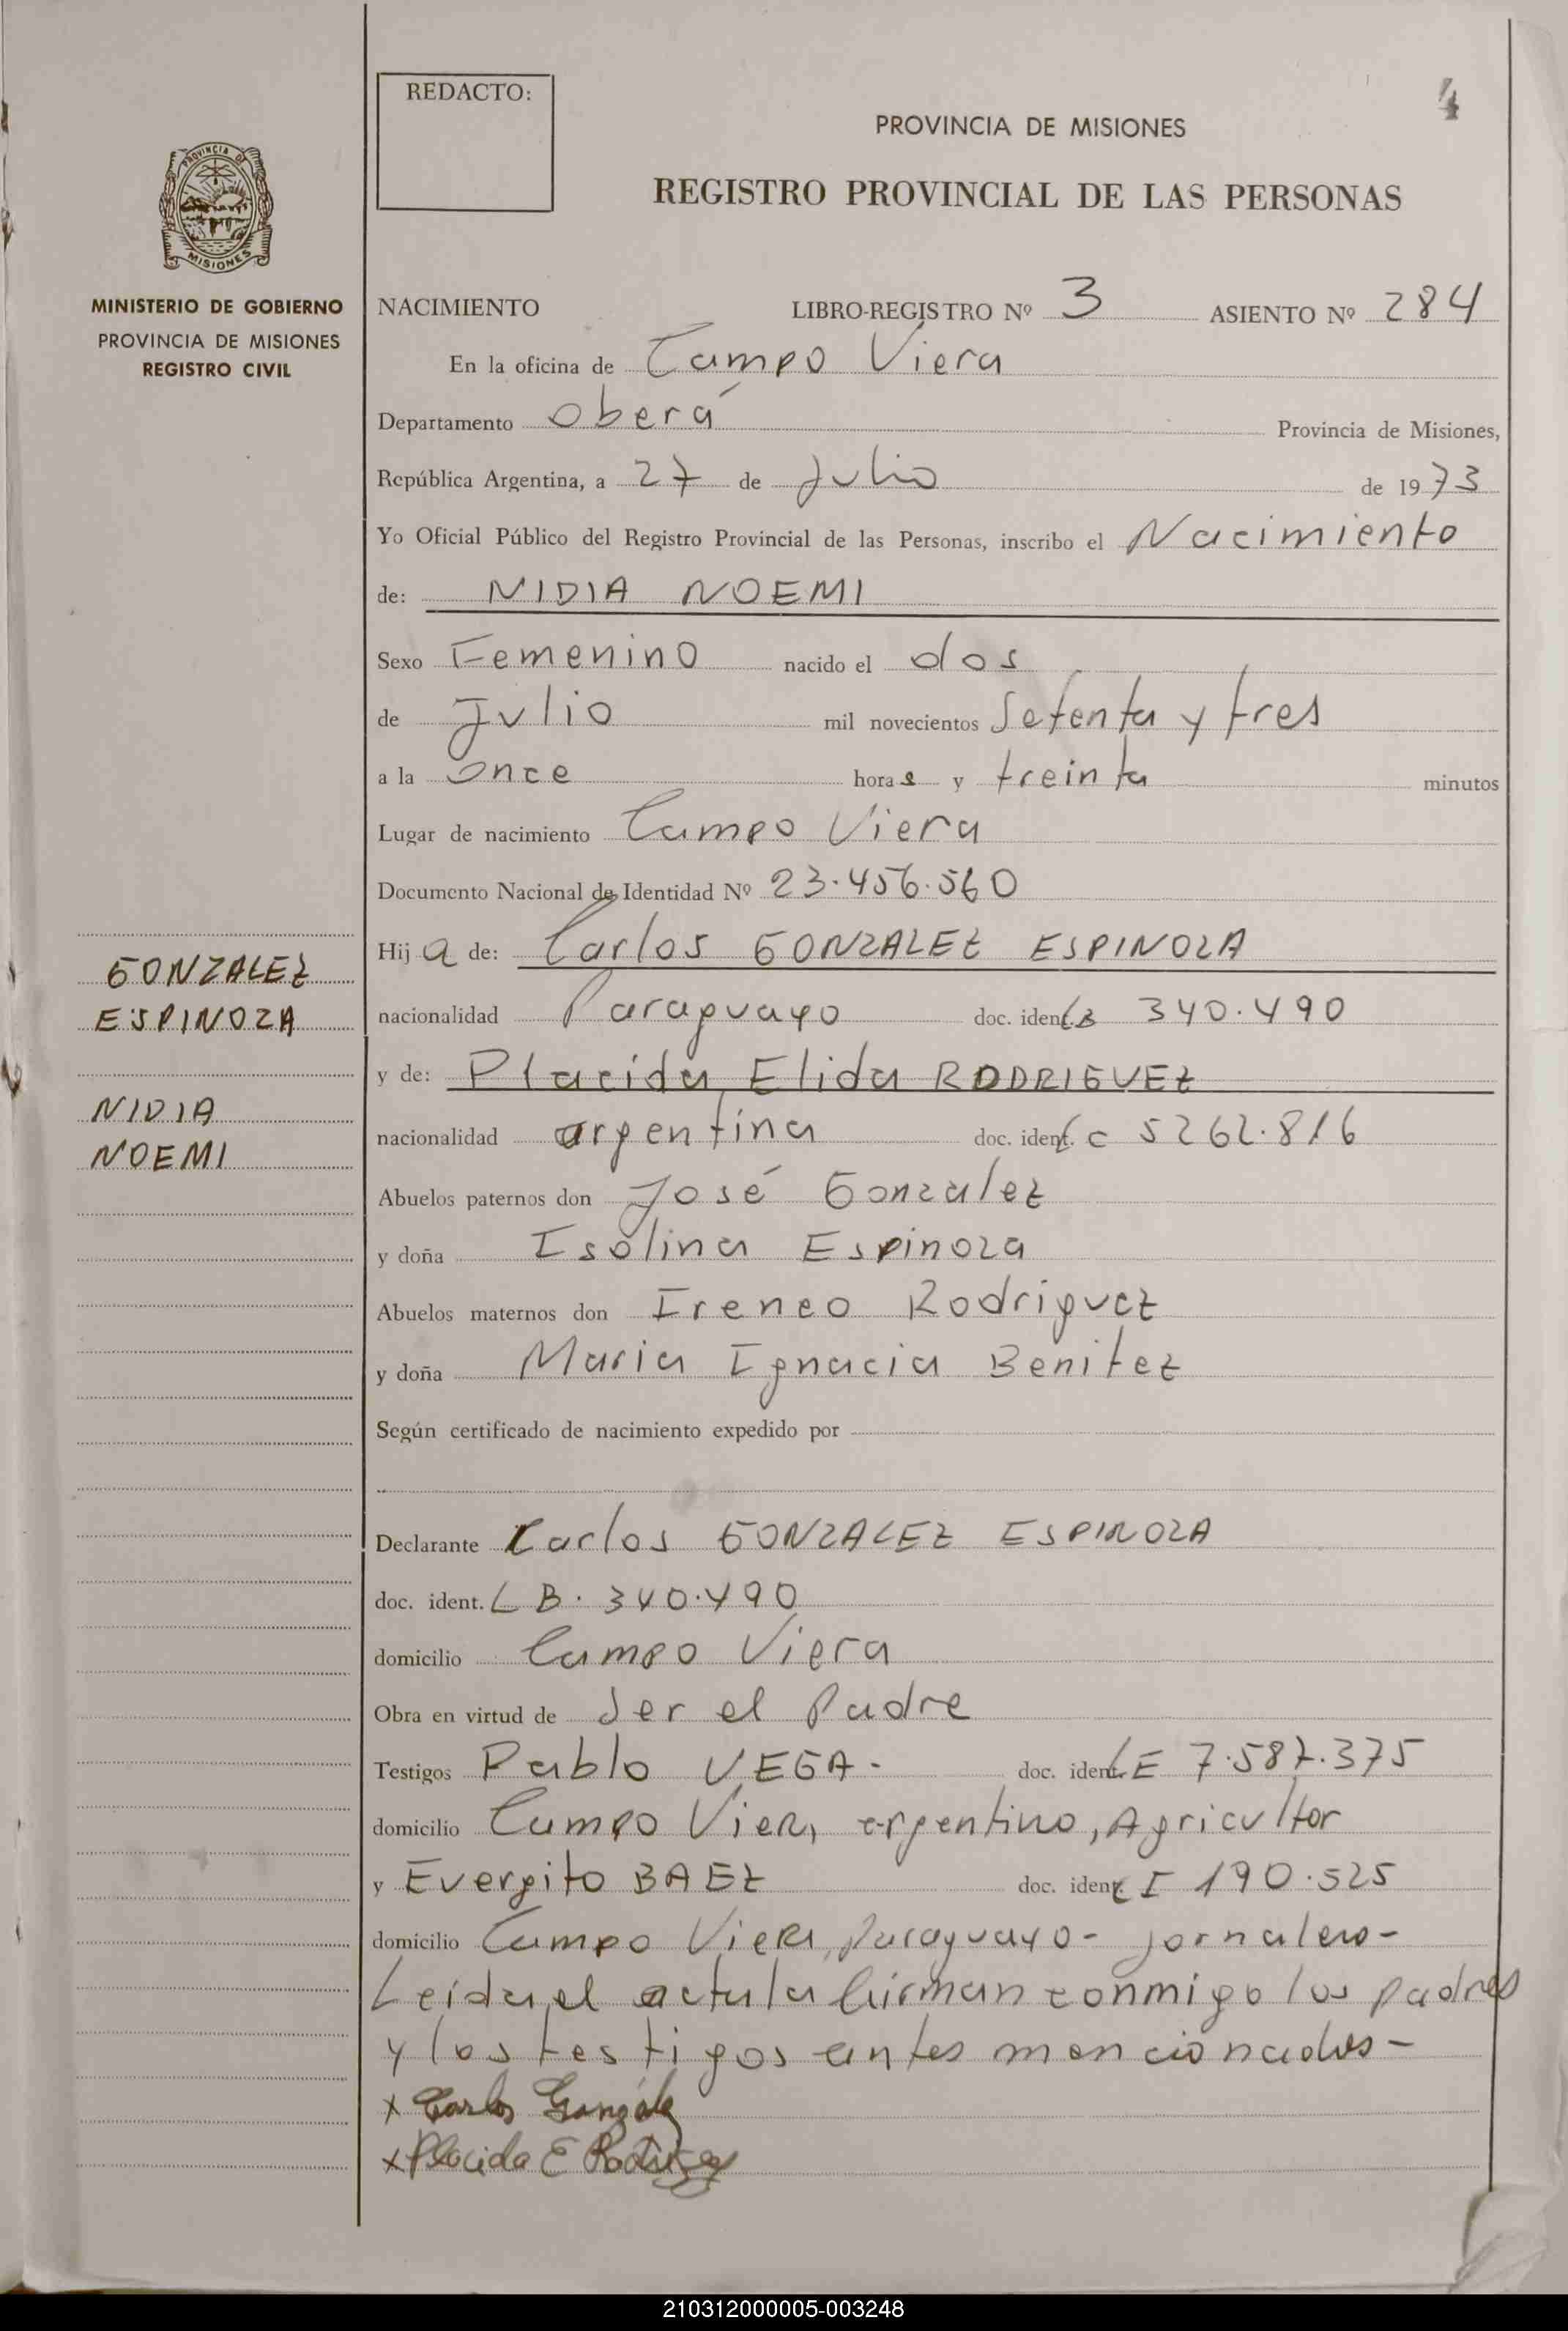 REDACTO:
4
PROVINCIA DE MISIONES
REGISTRO PROVINCIAL DE LAS PERSONAS
PROVINCIA DE
MISIONES
MINISTERIO DE GOBIERNO
PROVINCIA DE MISIONES
REGISTRO CIVIL
NACIMIENTO LIBRO-REGISTRO Nº 3 ASIENTO Nº 284
En la oficina de Campo Viera
Departamento Oberá Provincia de Misiones,
República Argentina, a 27 de Julio de 1973
Yo Oficial Público del Registro Provincial de las Personas, inscribo el Nacimiento
de: NIDIA NOEMI
Sexo Femenino nacido el dos
de Julio mil novecientos Setenta y tres
a la once horas y treinta minutos
Lugar de nacimiento Campo Viera
Documento Nacional de Identidad Nº 23.456.560
Hija de: Carlos GONZALEZ ESPINOZA
nacionalidad Paraguayo doc. ident. 340.490
y de: Placida Elida RODRIGUEZ
nacionalidad argentina doc. ident. LC 5262.816
Abuelos paternos don José Gonzalez
y doña Isolina Espinoza
Abuelos maternos don Ireneo Rodriguez
y doña Maria Ignacia Benitez
Según certificado de nacimiento expedido por
Declarante Carlos GONZALEZ ESPINOZA
doc. ident. LB. 340.490
domicilio Campo Viera
Obra en virtud de Ser el Padre
Testigos Pablo VEGA - doc. ident. LE 7.587.375
domicilio Campo Viera, argentino, Agricultor
y Evergito BAEZ doc. ident. CI 190.525
domicilio Campo Viera, Paraguayo - jornalero -
Leida el acta la firman conmigo los padres
y los testigos antes mencionados -
x Carlos Gonzalez
x Placida E Rodriguez
GONZALEZ
ESPINOZA
NIDIA
NOEMI
210312000005-003248